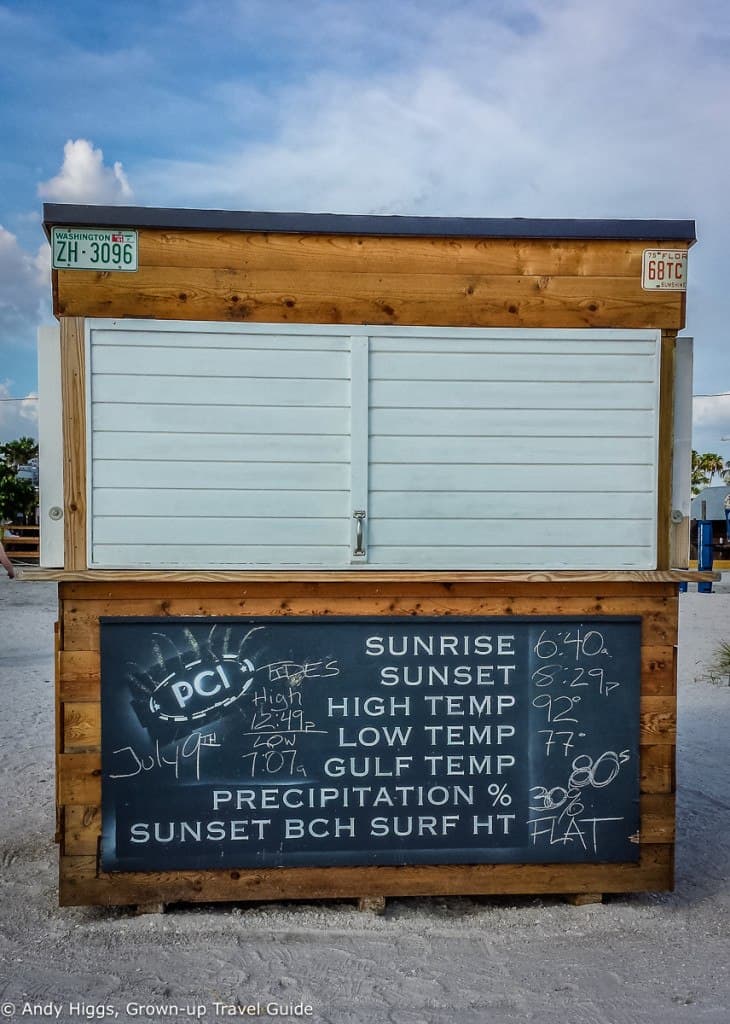 WASHINGTON
ZH·3096
75 FLOR
68TC
SUNSHINE
PCI
TIDES
High
12:49p
LOW
7:07a
July 9th
SUNRISE 6:40a
SUNSET 8:29p
HIGH TEMP 92°
LOW TEMP 77°
GULF TEMP 80s
PRECIPITATION % 30%
SUNSET BCH SURF HT FLAT
© Andy Higgs, Grown-up Travel Guide